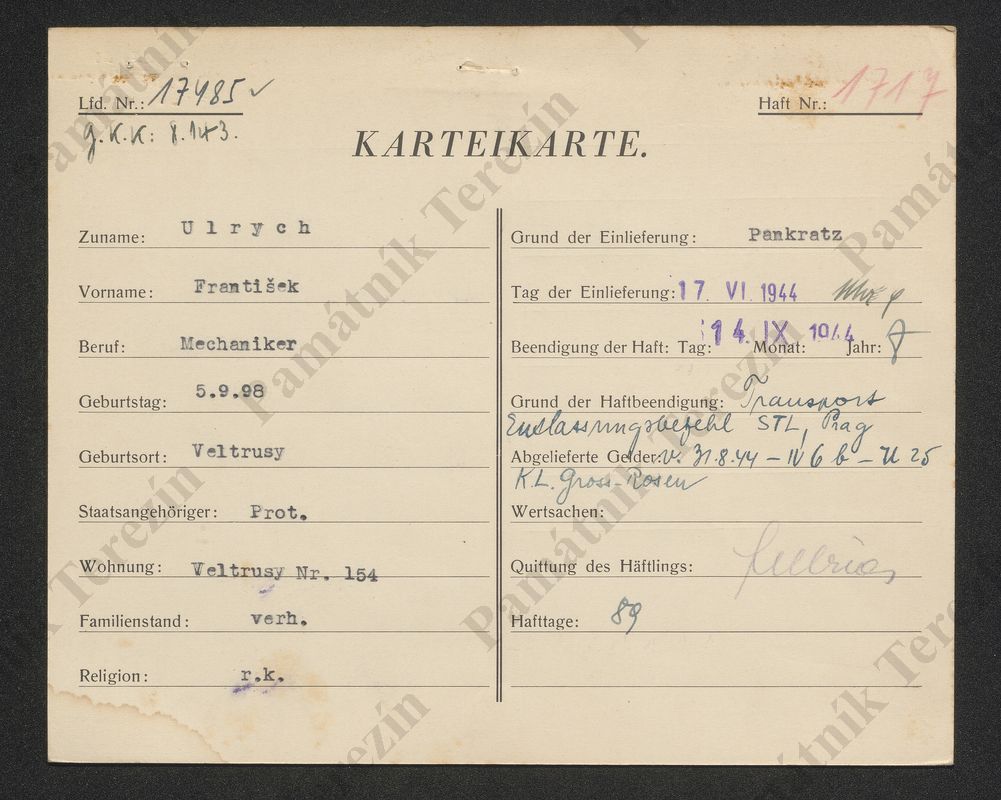 Lfd. Nr.: 17485 ✓
g.K.K: 8.143.
Haft Nr.: 1717
KARTEIKARTE.
Zuname: Ulrych
Vorname: František
Beruf: Mechaniker
Geburtstag: 5.9.98
Geburtsort: Veltrusy
Staatsangehöriger: Prot.
Wohnung: Veltrusy Nr. 154
Familienstand: verh.
Religion: r.k.
Grund der Einlieferung: Pankratz
Tag der Einlieferung: 17. VI. 1944
Beendigung der Haft: Tag: 14. Monat: IX Jahr: 1944
Grund der Haftbeendigung: Transport
Entlassungsbefehl STL, Prag
Abgelieferte Gelder: v. 31.8.44 – IV 6 b –
K.L. Gross-Rosen
Wertsachen:
Quittung des Häftlings:
Hafttage: 89
Památník Terezín